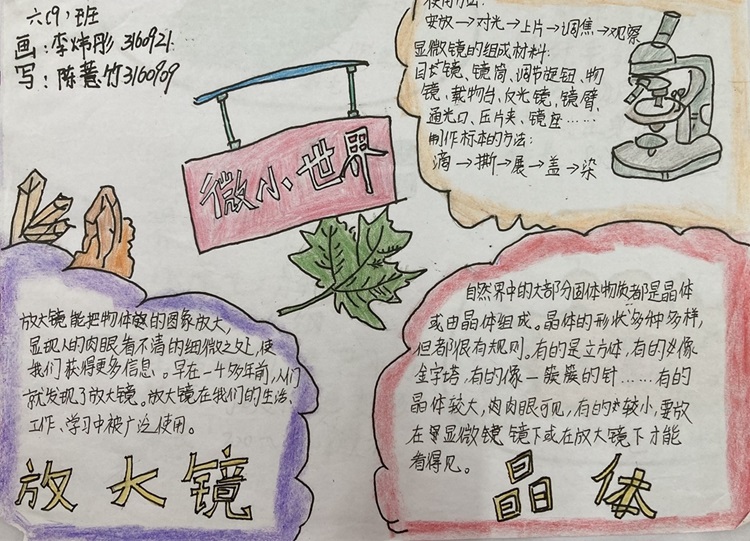 六(9)班
画:李炜彤 3160921
写:陈薏竹3160909
微小世界
使用方法:
安放→对光→上片→调焦→观察
显微镜的组成材料:
目镜、镜筒、调节旋钮、物
镜、载物台、反光镜、镜臂、
通光口、压片夹、镜座……
制作标本的方法:
滴→撕→展→盖→染
放大镜能把物体的图象放大,
显现人的肉眼看不清的细微之处,使
我们获得更多信息。早在一千多年前,人们
就发现了放大镜。放大镜在我们的生活、
工作、学习中被广泛使用。
放大镜
自然界中的大部分固体物质都是晶体
或由晶体组成。晶体的形状多种多样,
但都很有规则。有的是立方体,有的像
金字塔,有的像一簇簇的针……有的
晶体较大,肉肉眼可见,有的较小,要放
在显微镜镜下或在放大镜下才能
看得见。
晶体